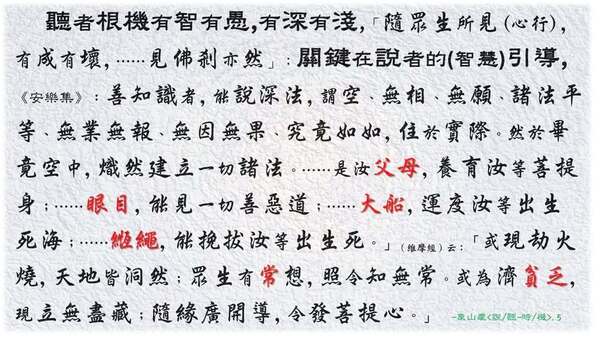 聽者根機有智有愚,有深有淺,「隨眾生所見(心行),
有成有壞,……見佛剎亦然」:關鍵在說者的(智慧)引導,
《安樂集》:善知識者,能說深法,謂空、無相、無願、諸法平
等、無業無報、無因無果、究竟如如,住於實際。然於畢
竟空中,熾然建立一切諸法。……是汝父母,養育汝等菩提
身;……眼目,能見一切善惡道;……大船,運度汝等出生
死海;……絙繩,能挽拔汝等出生死。」(維摩經)云:「或現劫火
燒,天地皆洞然;眾生有常想,照令知無常。或為濟貧乏,
現立無盡藏;隨緣廣開導,令發菩提心。」 -象山麓<說/聽-時/機>. 5